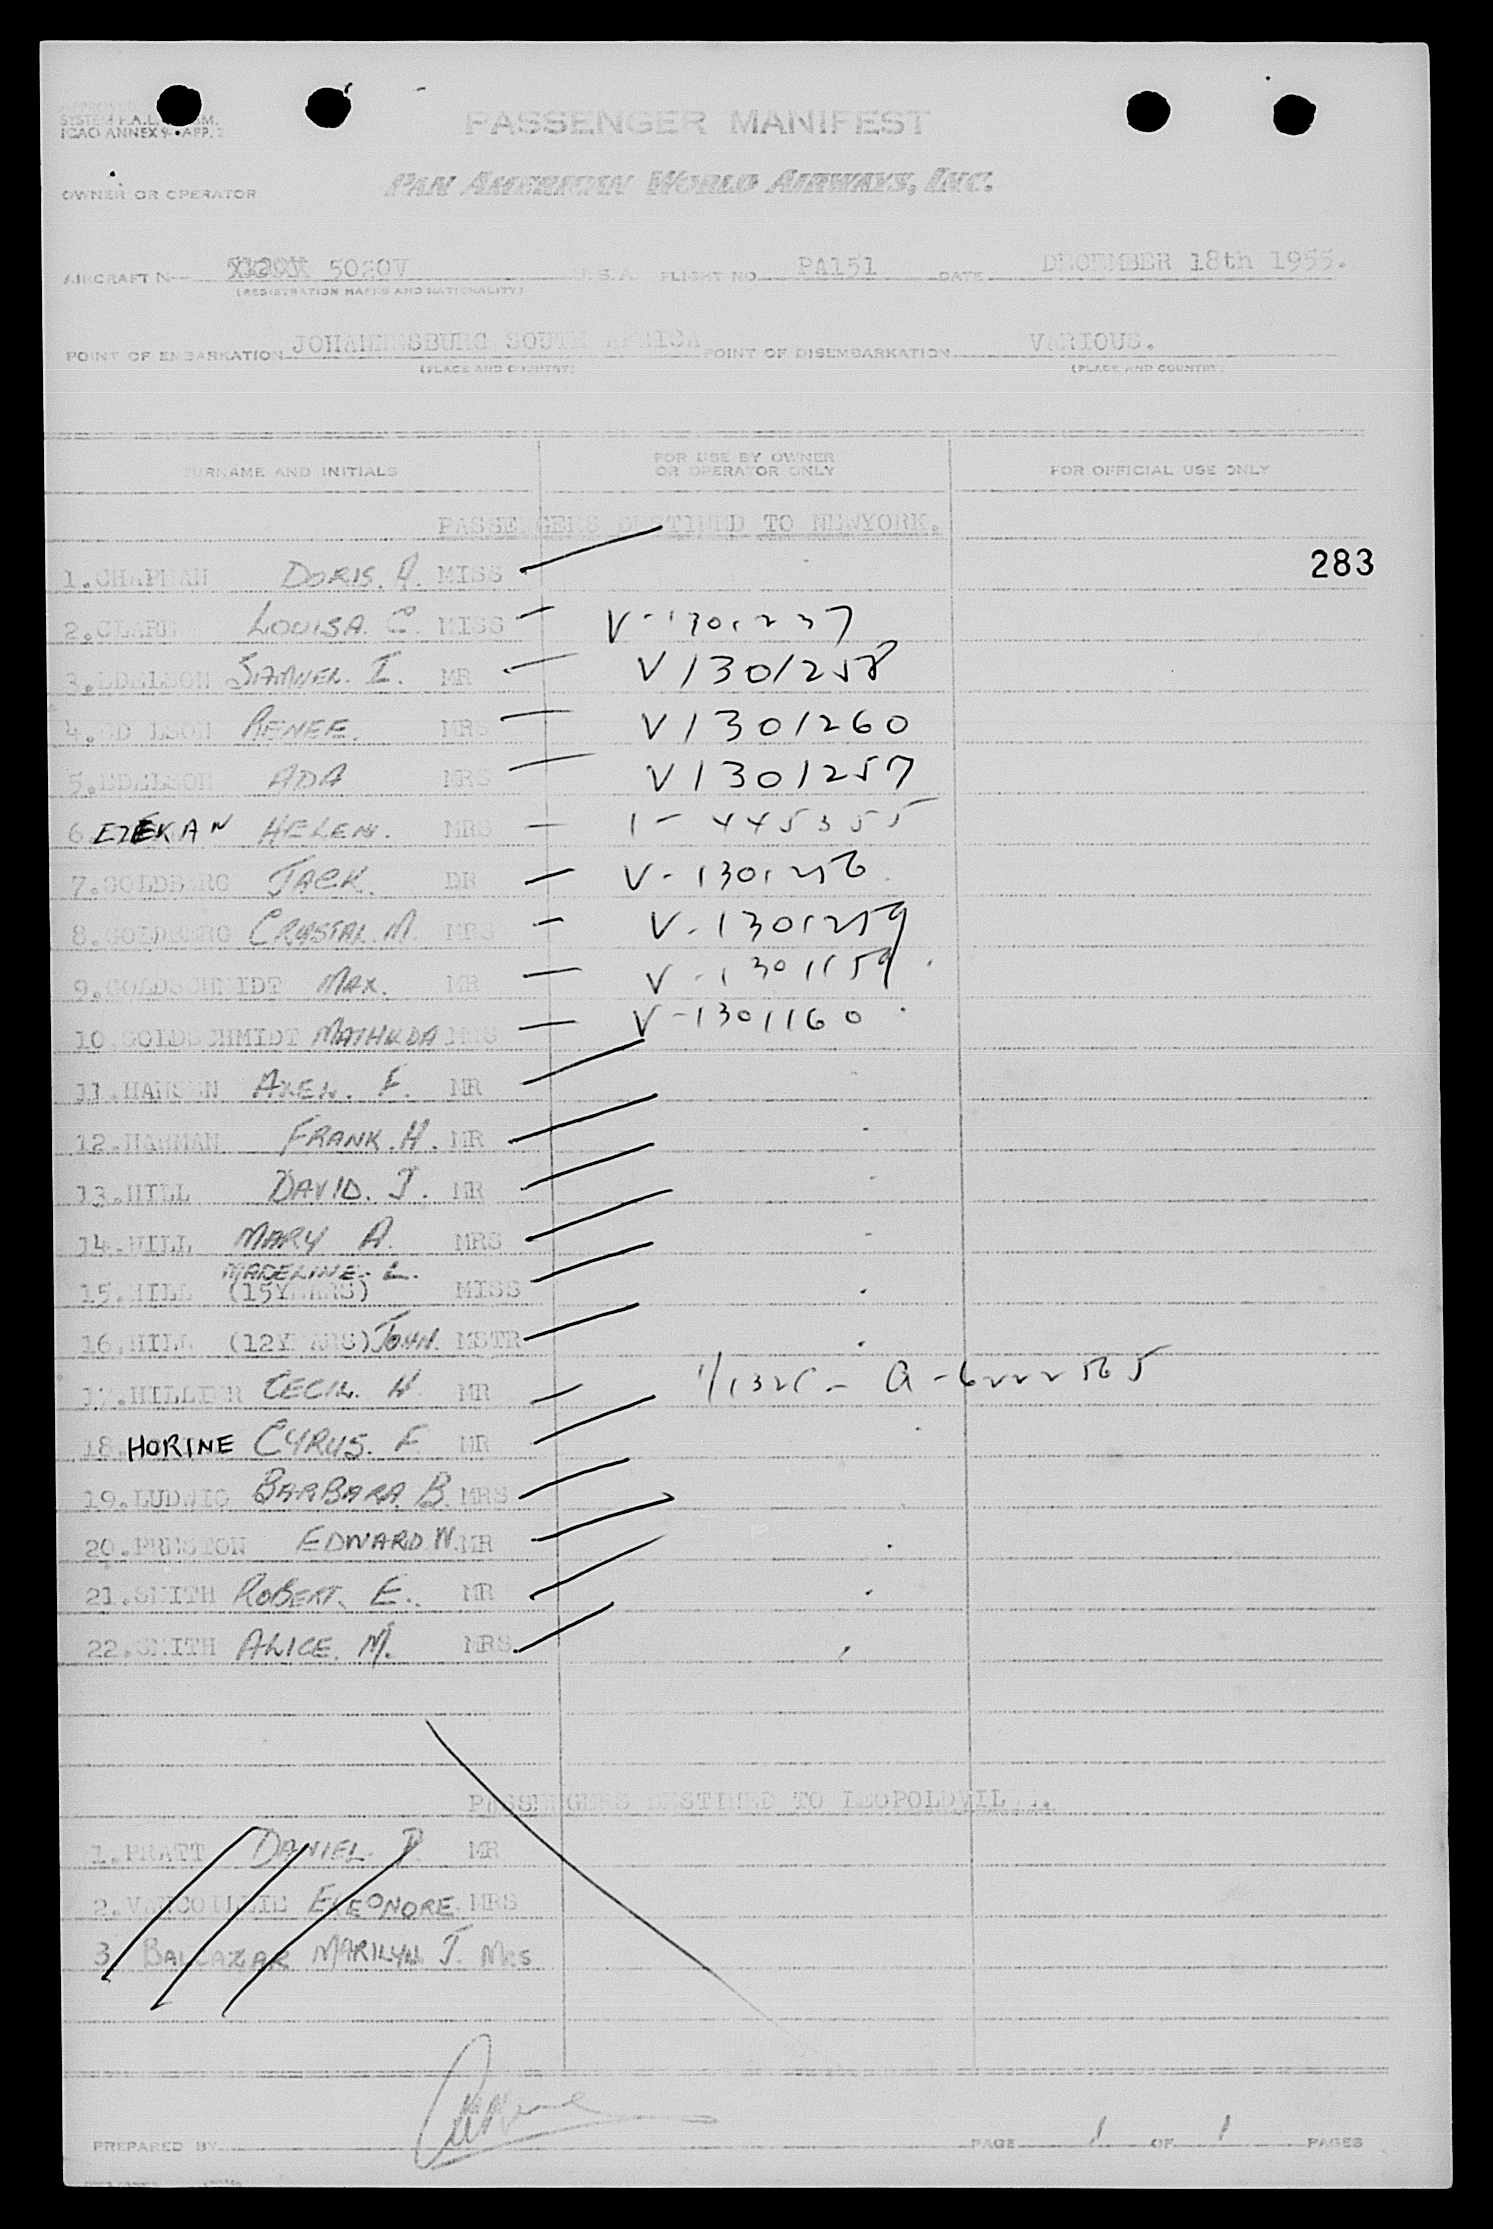 ICAO ANNEX 9 • APP. 2
PASSENGER MANIFEST
OWNER OR OPERATOR PAN AMERICAN WORLD AIRWAYS, INC.
AIRCRAFT N 5020V U.S.A. FLIGHT NO. PA151 DATE DECEMBER 18th 1955.
(REGISTRATION MARKS AND NATIONALITY)
POINT OF EMBARKATION JOHANNESBURG SOUTH AFRICA POINT OF DISEMBARKATION VARIOUS.
(PLACE AND COUNTRY) (PLACE AND COUNTRY)
SURNAME AND INITIALS FOR USE BY OWNER OR OPERATOR ONLY FOR OFFICIAL USE ONLY
PASSENGERS DESTINED TO NEWYORK.
283
1.CHAPMAN DORIS. A. MISS
2.CLARK LOUISA. C. MISS V-1301237
3.EDELSON SAMUEL. I. MR V1301258
4.EDELSON RENEE. MRS V1301260
5.EDELSON ADA MRS V1301257
6. EZEKAN HELEN. MRS 1-445355
7.GOLDBERG JACK. DR V-1301256
8.GOLDBERG CRYSTAL.M. MRS V-1301259
9.GOLDSCHMIDT MAX. MR V-1301159
10.GOLDSCHMIDT MATHILDA MRS V-1301160
11.HANSEN AXEL. F. MR
12.HARMAN FRANK.H. MR
13.HILL DAVID. J. MR
14.HILL MARY A. MRS
MADELINE. L.
15.HILL (15YEARS) MISS
16.HILL (12YEARS) JOHN. MSTR
17.HILLIER CECIL. H. MR A-6222565
18. HORINE CYRUS. F. MR
19.LUDWIG BARBARA B. MRS
20.PRESTON EDWARD W. MR
21.SMITH ROBERT. E. MR
22.SMITH ALICE. M. MRS
PASSENGERS DESTINED TO LEOPOLDVILLE.
1.PRATT DANIEL. D. MR
2.VANCOILLIE ELEONORE MRS
3 BALCAZAR MARILYN J. MRS
PREPARED BY PAGE 1 OF 1 PAGES